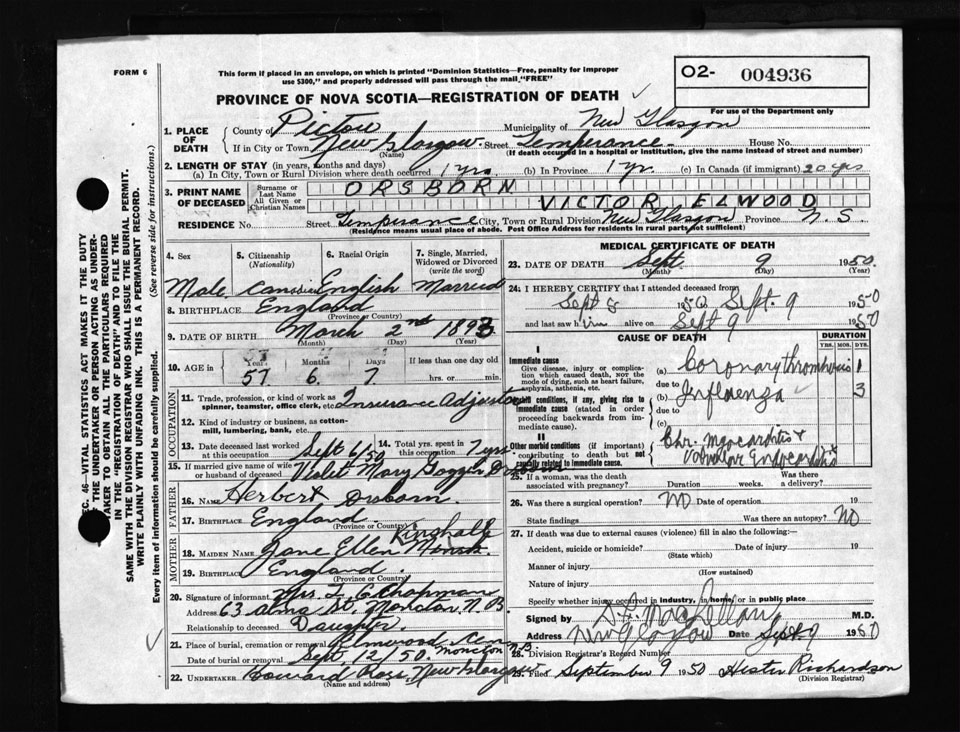 FORM 6
This form if placed in an envelope, on which is printed "Dominion Statistics—Free, penalty for improper
use $300," and properly addressed will pass through the mail, "FREE"
O2- 004936
PROVINCE OF NOVA SCOTIA—REGISTRATION OF DEATH
For use of the Department only
1. PLACE OF DEATH
County of Pictou Municipality of New Glasgow
If in City or Town New Glasgow Street Temperance House No.
(Name) (If death occurred in a hospital or institution, give the name instead of street and number)
2. LENGTH OF STAY (in years, months and days)
(a) In City, Town or Rural Division where death occurred 1 yrs. (b) In Province 1 yr. (c) In Canada (if immigrant) 20 yrs
3. PRINT NAME OF DECEASED
Surname or Last Name ORSBORN
All Given or Christian Names VICTOR ELWOOD
RESIDENCE No. Street Temperance City, Town or Rural Division New Glasgow Province N.S.
(Residence means usual place of abode. Post Office Address for residents in rural parts not sufficient)
4. Sex
5. Citizenship (Nationality)
6. Racial Origin
7. Single, Married, Widowed or Divorced (write the word)
Male Canadian English Married
8. BIRTHPLACE England
(Province or Country)
9. DATE OF BIRTH March 2nd 1893
(Month) (Day) (Year)
10. AGE in
Years Months Days If less than one day old
57 6 7 hrs. or min.
OCCUPATION
11. Trade, profession, or kind of work as spinner, teamster, office clerk, etc. Insurance Adjustor
12. Kind of industry or business, as cotton-mill, lumbering, bank, etc.
13. Date deceased last worked at this occupation Sept 6/50
14. Total yrs. spent in this occupation 7 yrs
15. If married give name of wife or husband of deceased Violet Mary Goggin Orsborn
FATHER
16. NAME Herbert Orsborn
17. BIRTHPLACE England
(Province or Country)
MOTHER
18. MAIDEN NAME Jane Ellen
19. BIRTHPLACE England
(Province or Country)
20. Signature of informant Mrs. L. C. Chapman
Address 63 Alma St. Moncton, N.B
Relationship to deceased Daughter
21. Place of burial, cremation or removal Elmwood Cem Moncton N.B.
Date of burial or removal Sept 12/50
22. UNDERTAKER Howard Ross, New Glasgow
(Name and address)
MEDICAL CERTIFICATE OF DEATH
23. DATE OF DEATH Sept 9 1950
(Month) (Day) (Year)
24. I HEREBY CERTIFY that I attended deceased from
Sept 8 1950 Sept. 9 1950
and last saw him alive on Sept 9 1950
CAUSE OF DEATH DURATION
YRS. MOS. DYS.
I
Immediate cause
Give disease, injury or complication which caused death, not the mode of dying, such as heart failure, asphyxia, asthenia, etc.
(a) Coronary thrombosis 1
due to
(b) Influenza 3
due to
(c)
Morbid conditions, if any, giving rise to immediate cause (stated in order proceeding backwards from immediate cause).
II
Other morbid conditions (if important) contributing to death but not causally related to immediate cause.
Chr. Myocarditis &
Valvular Endocarditis
25. If a woman, was the death associated with pregnancy? Duration weeks. Was there a delivery?
26. Was there a surgical operation? No Date of operation 19
State findings Was there an autopsy? No
27. If death was due to external causes (violence) fill in also the following:
Accident, suicide or homicide? Date of injury 19
(State which)
Manner of injury
(How sustained)
Nature of injury
Specify whether injury occurred in industry, in home, or in public place
Signed by MacLellan M.D.
Address New Glasgow Date Sept. 9 1950
28. Division Registrar's Record Number
29. Filed September 9 1950 Hester Richardson
(Division Registrar)
SEC. 46—VITAL STATISTICS ACT MAKES IT THE DUTY
OF THE UNDERTAKER OR PERSON ACTING AS UNDERTAKER TO OBTAIN ALL THE PARTICULARS REQUIRED
IN THE "REGISTRATION OF DEATH" AND TO FILE THE
SAME WITH THE DIVISION REGISTRAR WHO SHALL ISSUE THE BURIAL PERMIT.
WRITE PLAINLY WITH UNFADING INK. THIS IS A PERMANENT RECORD.
Every item of information should be carefully supplied. (See reverse side for instructions.)